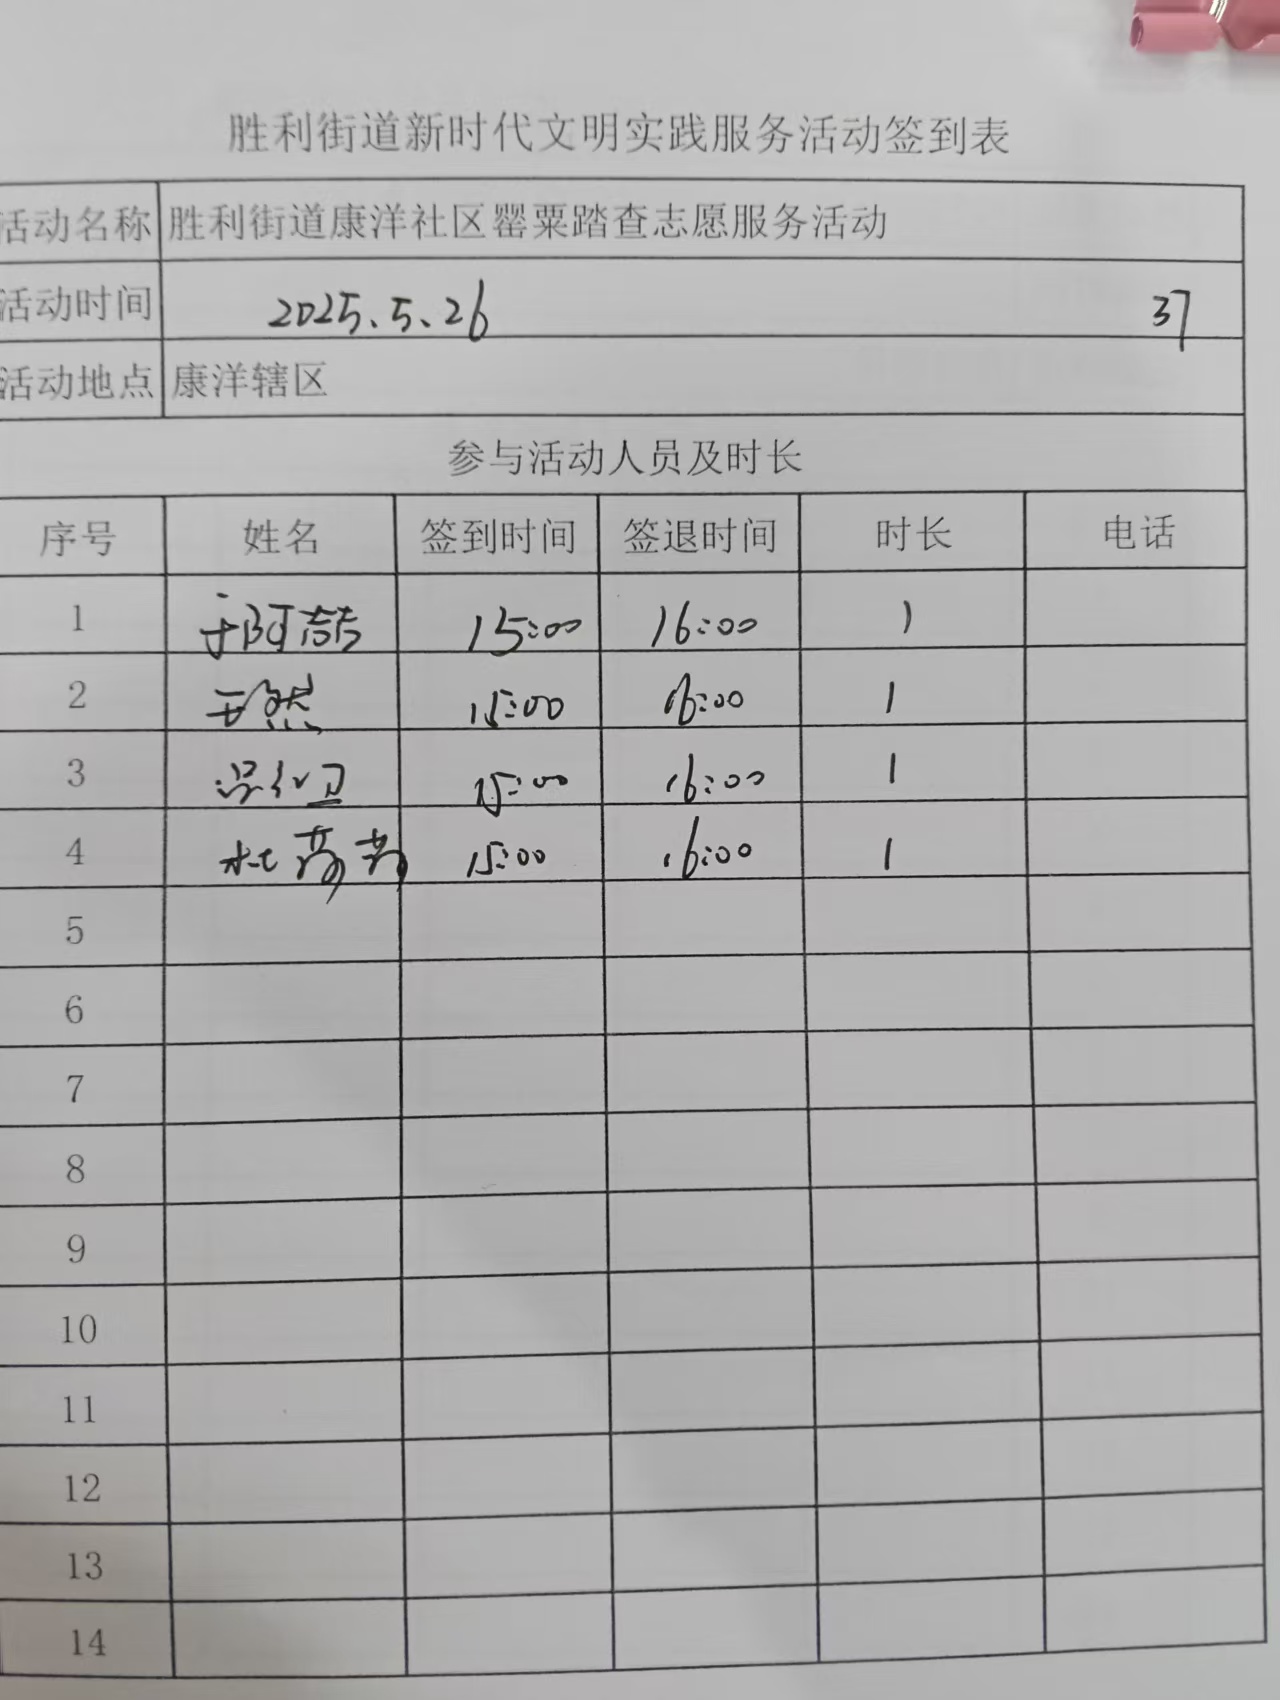 胜利街道新时代文明实践服务活动签到表
活动名称 胜利街道康洋社区罂粟踏查志愿服务活动
活动时间 2025.5.26 37
活动地点 康洋辖区
参与活动人员及时长
序号 姓名 签到时间 签退时间 时长 电话
1 于阿喆 15:00 16:00 1
2 王然 15:00 16:00 1
3 15:00 16:00 1
4 杜 15:00 16:00 1
5
6
7
8
9
10
11
12
13
14